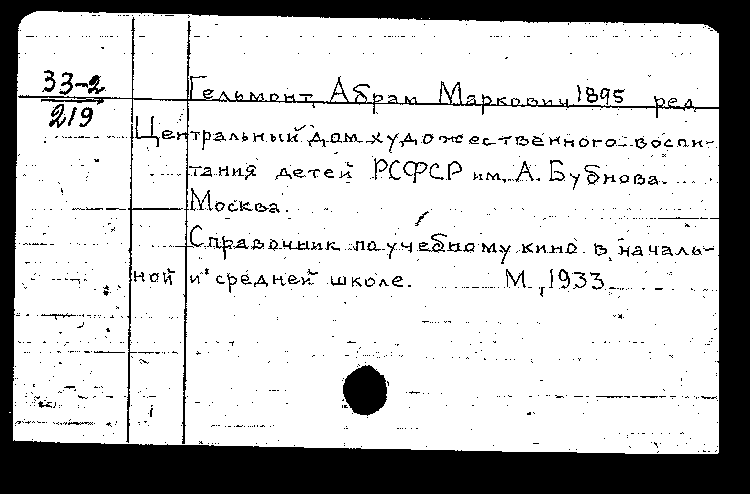 33-2
219
Гельмонт, Абрам Маркович 1895 ред
Центральный дом художественного воспи-
тания детей РСФСР им. А. Бубнова.
Москва.
Справочник по учебному кино в началь-
ной и средней школе. М., 1933